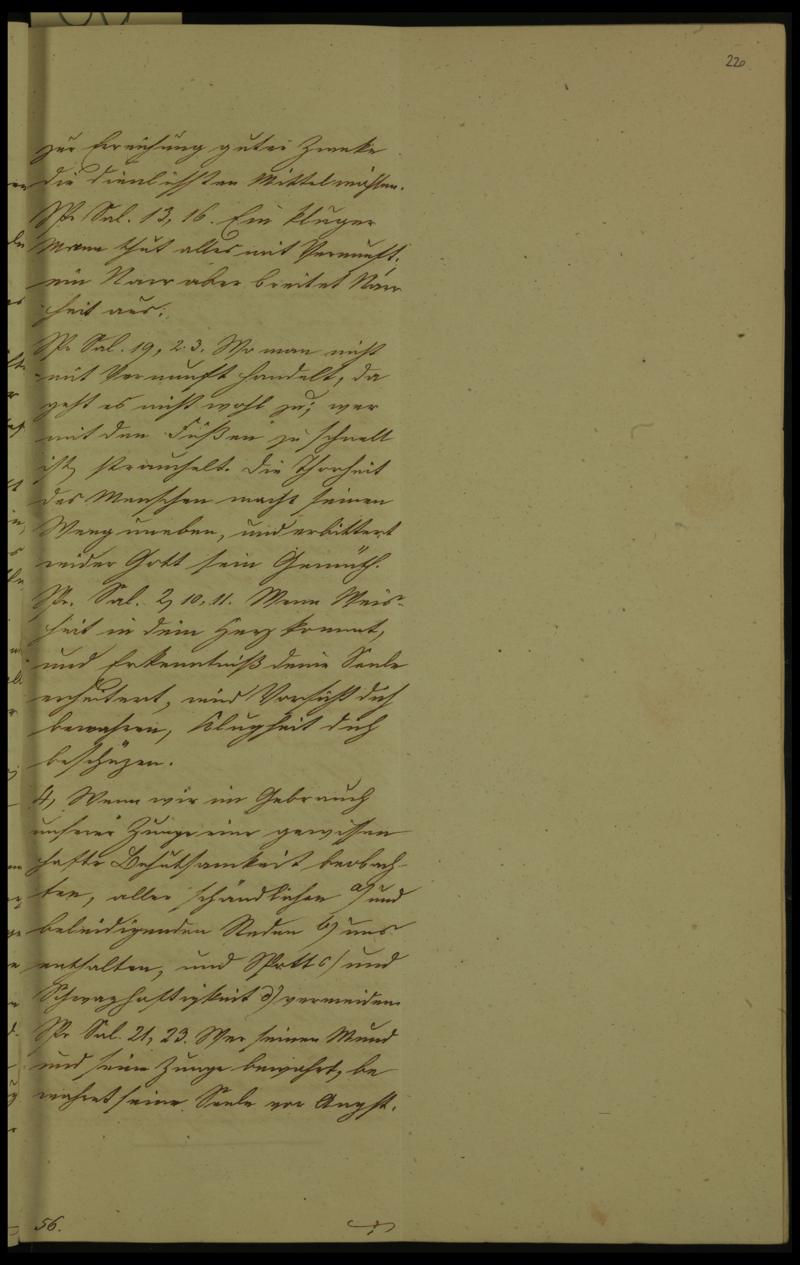 220
zur Erreichung guter Zweke
die dienlichsten Mittel wählen.
Spr. Sal. 13, 16. Ein kluger
Mann thut alles mit Vernunft,
ein Narr aber breitet Narr
heit aus.
Spr. Sal. 19, 2. 3. Wo man nicht
mit Vernunft handelt, da
geht es nicht wohl zu; wer
mit den Füßen zu schnell
ist, strauchelt. Die Thorheit
des Menschen macht seinen
Weeg uneben, und erbittert
wider Gott sein Gemüth.
Spr. Sal. 2, 10, 11. Wenn Weis-
heit in dein Herz kommt,
und Erkenntniß deine Seele
erheitert, wird Vorsicht dich
bewahren, Klugheit dich
beschüzen.
4, Wenn wir im Gebrauch
unserer Zunge eine gewissen
hafte Behutsamkeit beobach-
ten, aller schändlichen a) und
beleidigenden Reden b) uns
enthalten, und Spott c) und
Schwazhaftigkeit d) vermeiden.
Spr. Sal. 21, 23. Wer seinen Mund
und seine Zunge bewahrt, be
wahret seine Seele vor Angst.
56.